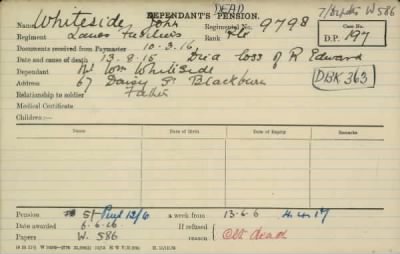 DEAD
DEPENDANT'S PENSION.
7/Depdts W 586
Name Whiteside John Regimental No. 9798
Case No.
Regiment Lancs Fusiliers Rank Pte
D.P. 197
Documents received from Paymaster 10.3.16.
Date and causes of death 13.8.15 Died loss of R Edward
Dependant Mr Wm Whiteside
DBK 363
Address 67 Daisy St Blackburn
Relationship to soldier Father
Medical Certificate
Children:—
Name Date of Birth. Date of Expiry. Remarks.
Pension 5/- a week from 13.6.6
Date awarded 6.6.16 If refused
Papers W. 586 reason Clt dead